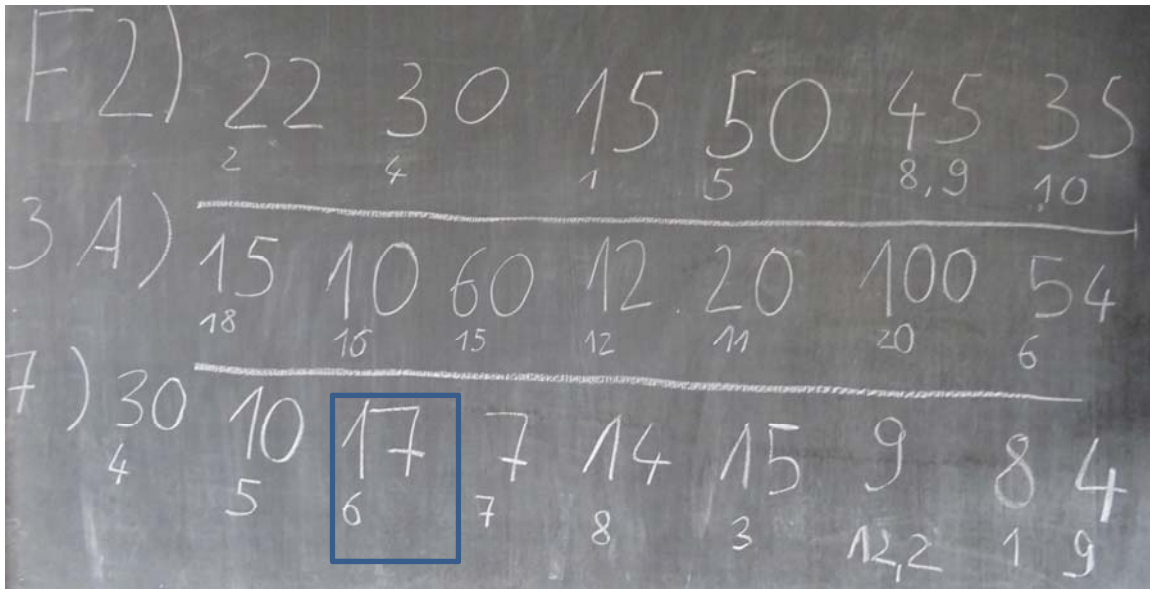 F2) 22 30 15 50 45 35
2 4 1 5 8,9 10
3A) 15 10 60 12 20 100 54
18 16 15 12 11 20 6
7) 30 10 17 7 14 15 9 8 4
4 5 6 7 8 3 12,2 1 9